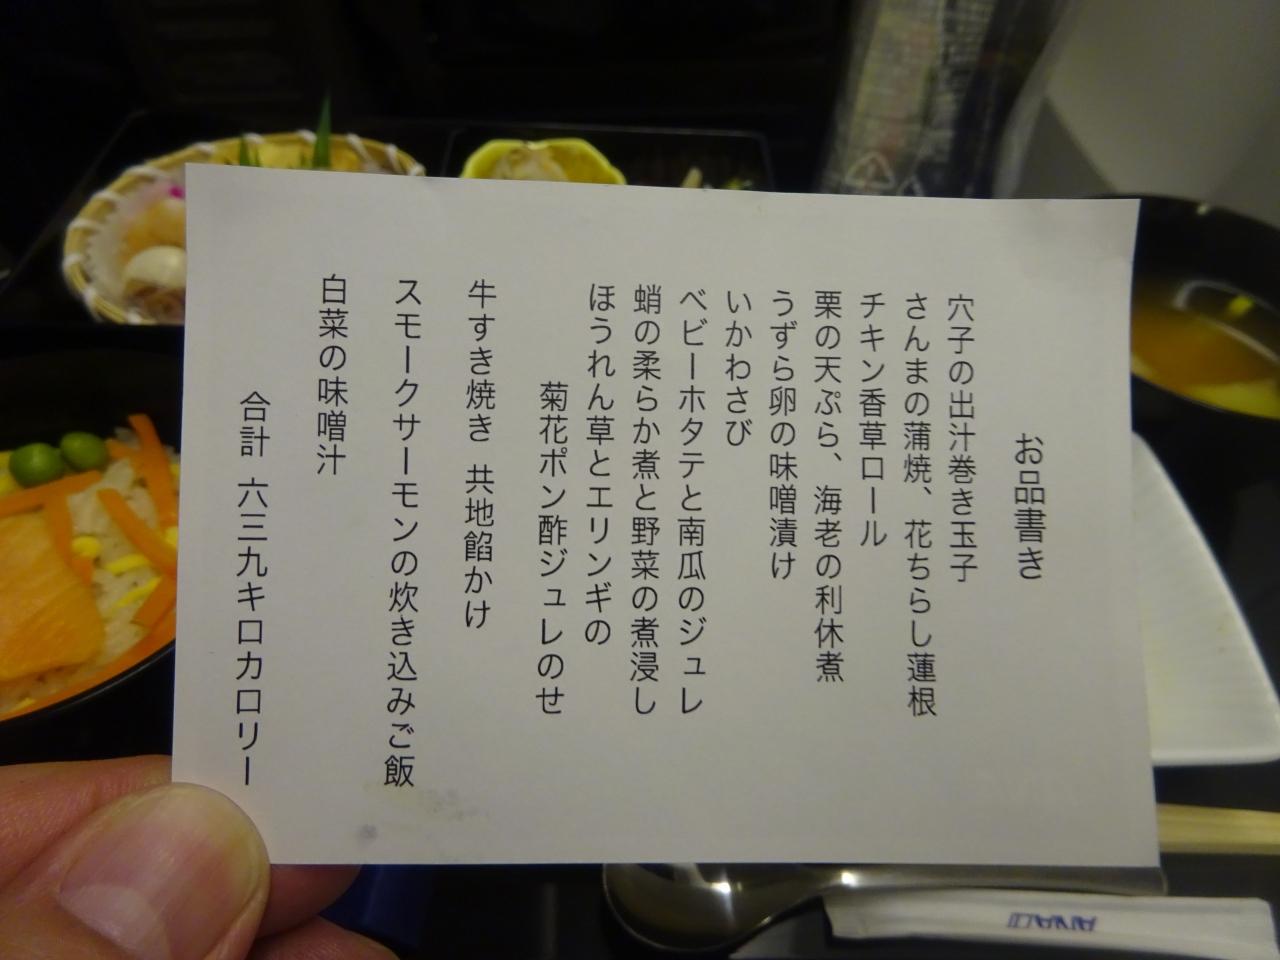 お品書き
穴子の出汁巻き玉子
さんまの蒲焼、花ちらし蓮根
チキン香草ロール
栗の天ぷら、海老の利休煮
うずら卵の味噌漬け
いかわさび
ベビーホタテと南瓜のジュレ
蛸の柔らか煮と野菜の煮浸し
ほうれん草とエリンギの
菊花ポン酢ジュレのせ
牛すき焼き 共地餡かけ
スモークサーモンの炊き込みご飯
白菜の味噌汁
合計 六三九キロカロリー
ANA